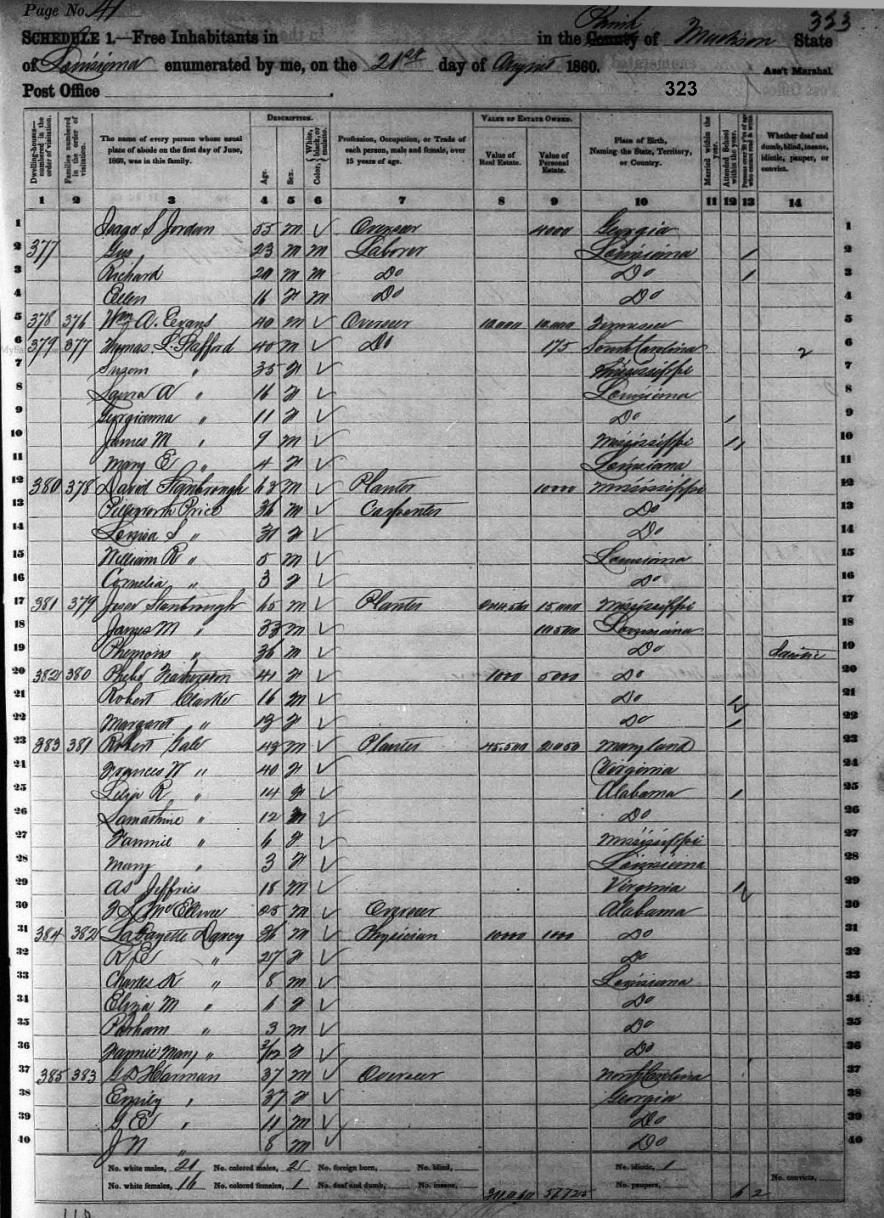 Page No. 41
323
SCHEDULE 1.—Free Inhabitants in in the County Parish of Madison State
of Louisiana enumerated by me, on the 21st day of August 1860. Ass't Marshal.
Post Office
323
Dwelling-houses—numbered in the order of visitation.
Families numbered in the order of visitation.
The name of every person whose usual place of abode on the first day of June, 1860, was in this family.
DESCRIPTION.
Age.
Sex.
Color, White, black, or mulatto.
Profession, Occupation, or Trade of each person, male and female, over 15 years of age.
VALUE OF ESTATE OWNED.
Value of Real Estate.
Value of Personal Estate.
Place of Birth, Naming the State, Territory, or Country.
Married within the year.
Attended School within the year.
Whether deaf and dumb, blind, insane, idiotic, pauper, or convict.
1 2 3 4 5 6 7 8 9 10 11 12 13 14
1 S Jordan 55 m ✓ Overseer 4000 Georgia 1
2 377 Gus 23 m m Laborer Louisiana / 2
3 Richard 20 m m Do Do / 3
4 Ellen 16 f m Do Do 4
5 378 376 Wm A. Evans 40 m ✓ Overseer 10.000 10.000 Tennessee 5
6 379 377 Thomas L. Stafford 40 m ✓ Do 175 South Carolina 2 6
7 Susan " 35 f ✓ Mississippi 7
8 Laura A " 16 f ✓ Louisiana 8
9 Georgianna " 11 f ✓ Do / 9
10 James M " 9 m ✓ Mississippi / 10
11 Mary E " 4 f ✓ Louisiana 11
12 380 378 David Stanbrough 63 m ✓ Planter 1000 Mississippi 12
13 Price 36 m ✓ Carpenter Do 13
14 Louisa S " 31 f ✓ Do 14
15 William R " 5 m ✓ Louisiana 15
16 Cornelia " 3 f ✓ Do 16
17 381 379 Jesse Stanbrough 65 m ✓ Planter 15.000 Mississippi 17
18 James M " 33 m ✓ 10500 Louisiana 18
19 " 36 m ✓ Do 19
20 382 380 Phebe 41 f ✓ 1000 5000 Do 20
21 Robert Clarke 16 m ✓ Do / 21
22 Margaret " 13 f ✓ Do / 22
23 383 381 Robert Gale 43 m ✓ Planter 45.500 21050 Maryland 23
24 Frances W " 40 f ✓ Virginia 24
25 R " 14 f ✓ Alabama / 25
26 Lamartine " 12 m ✓ Do 26
27 Fannie " 6 f ✓ Mississippi 27
28 Mary " 3 f ✓ Louisiana 28
29 Jeffries 18 m ✓ Virginia / 29
30 25 m ✓ Overseer Alabama 30
31 384 382 LaFayette Darcey 36 m ✓ Physician 1000 Do 31
32 R E " 27 f ✓ Do 32
33 Charles K " 8 m ✓ Louisiana 33
34 Eliza M " 6 f ✓ Do 34
35 Parham " 3 m ✓ Do 35
36 Fannie Mary " 3/12 f ✓ Do 36
37 385 383 G D Harman 37 m ✓ Overseer North Carolina 37
38 Emily " 37 f ✓ Georgia 38
39 G E " 11 m ✓ Do 39
40 J N " 8 m ✓ Do 40
No. white males, 21 No. colored males, 2 No. foreign born, No. blind, No. idiotic, 1
No. white females, 16 No. colored females, 1 No. deaf and dumb, No. insane, No. paupers, No. convicts,
56725 6 2